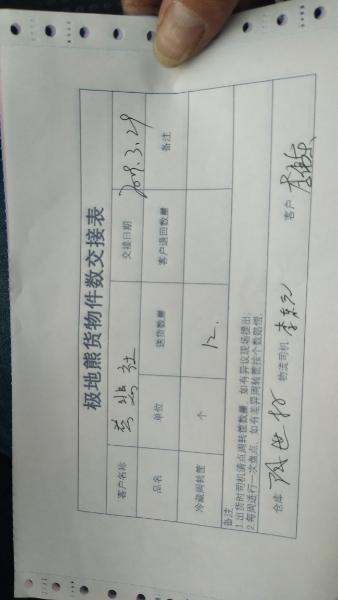 极地熊货物件数交接表
客户名称 交接日期 2019.3.29
品名 单位 送货数量 客户退回数量 备注
冷藏周转筐 个 12
备注:
1.出货时司机请点周转筐数量,如有异议现场提出.
2.每周进行一次盘点,如有差异周转筐按个数赔偿.
仓库: 物流司机 客户